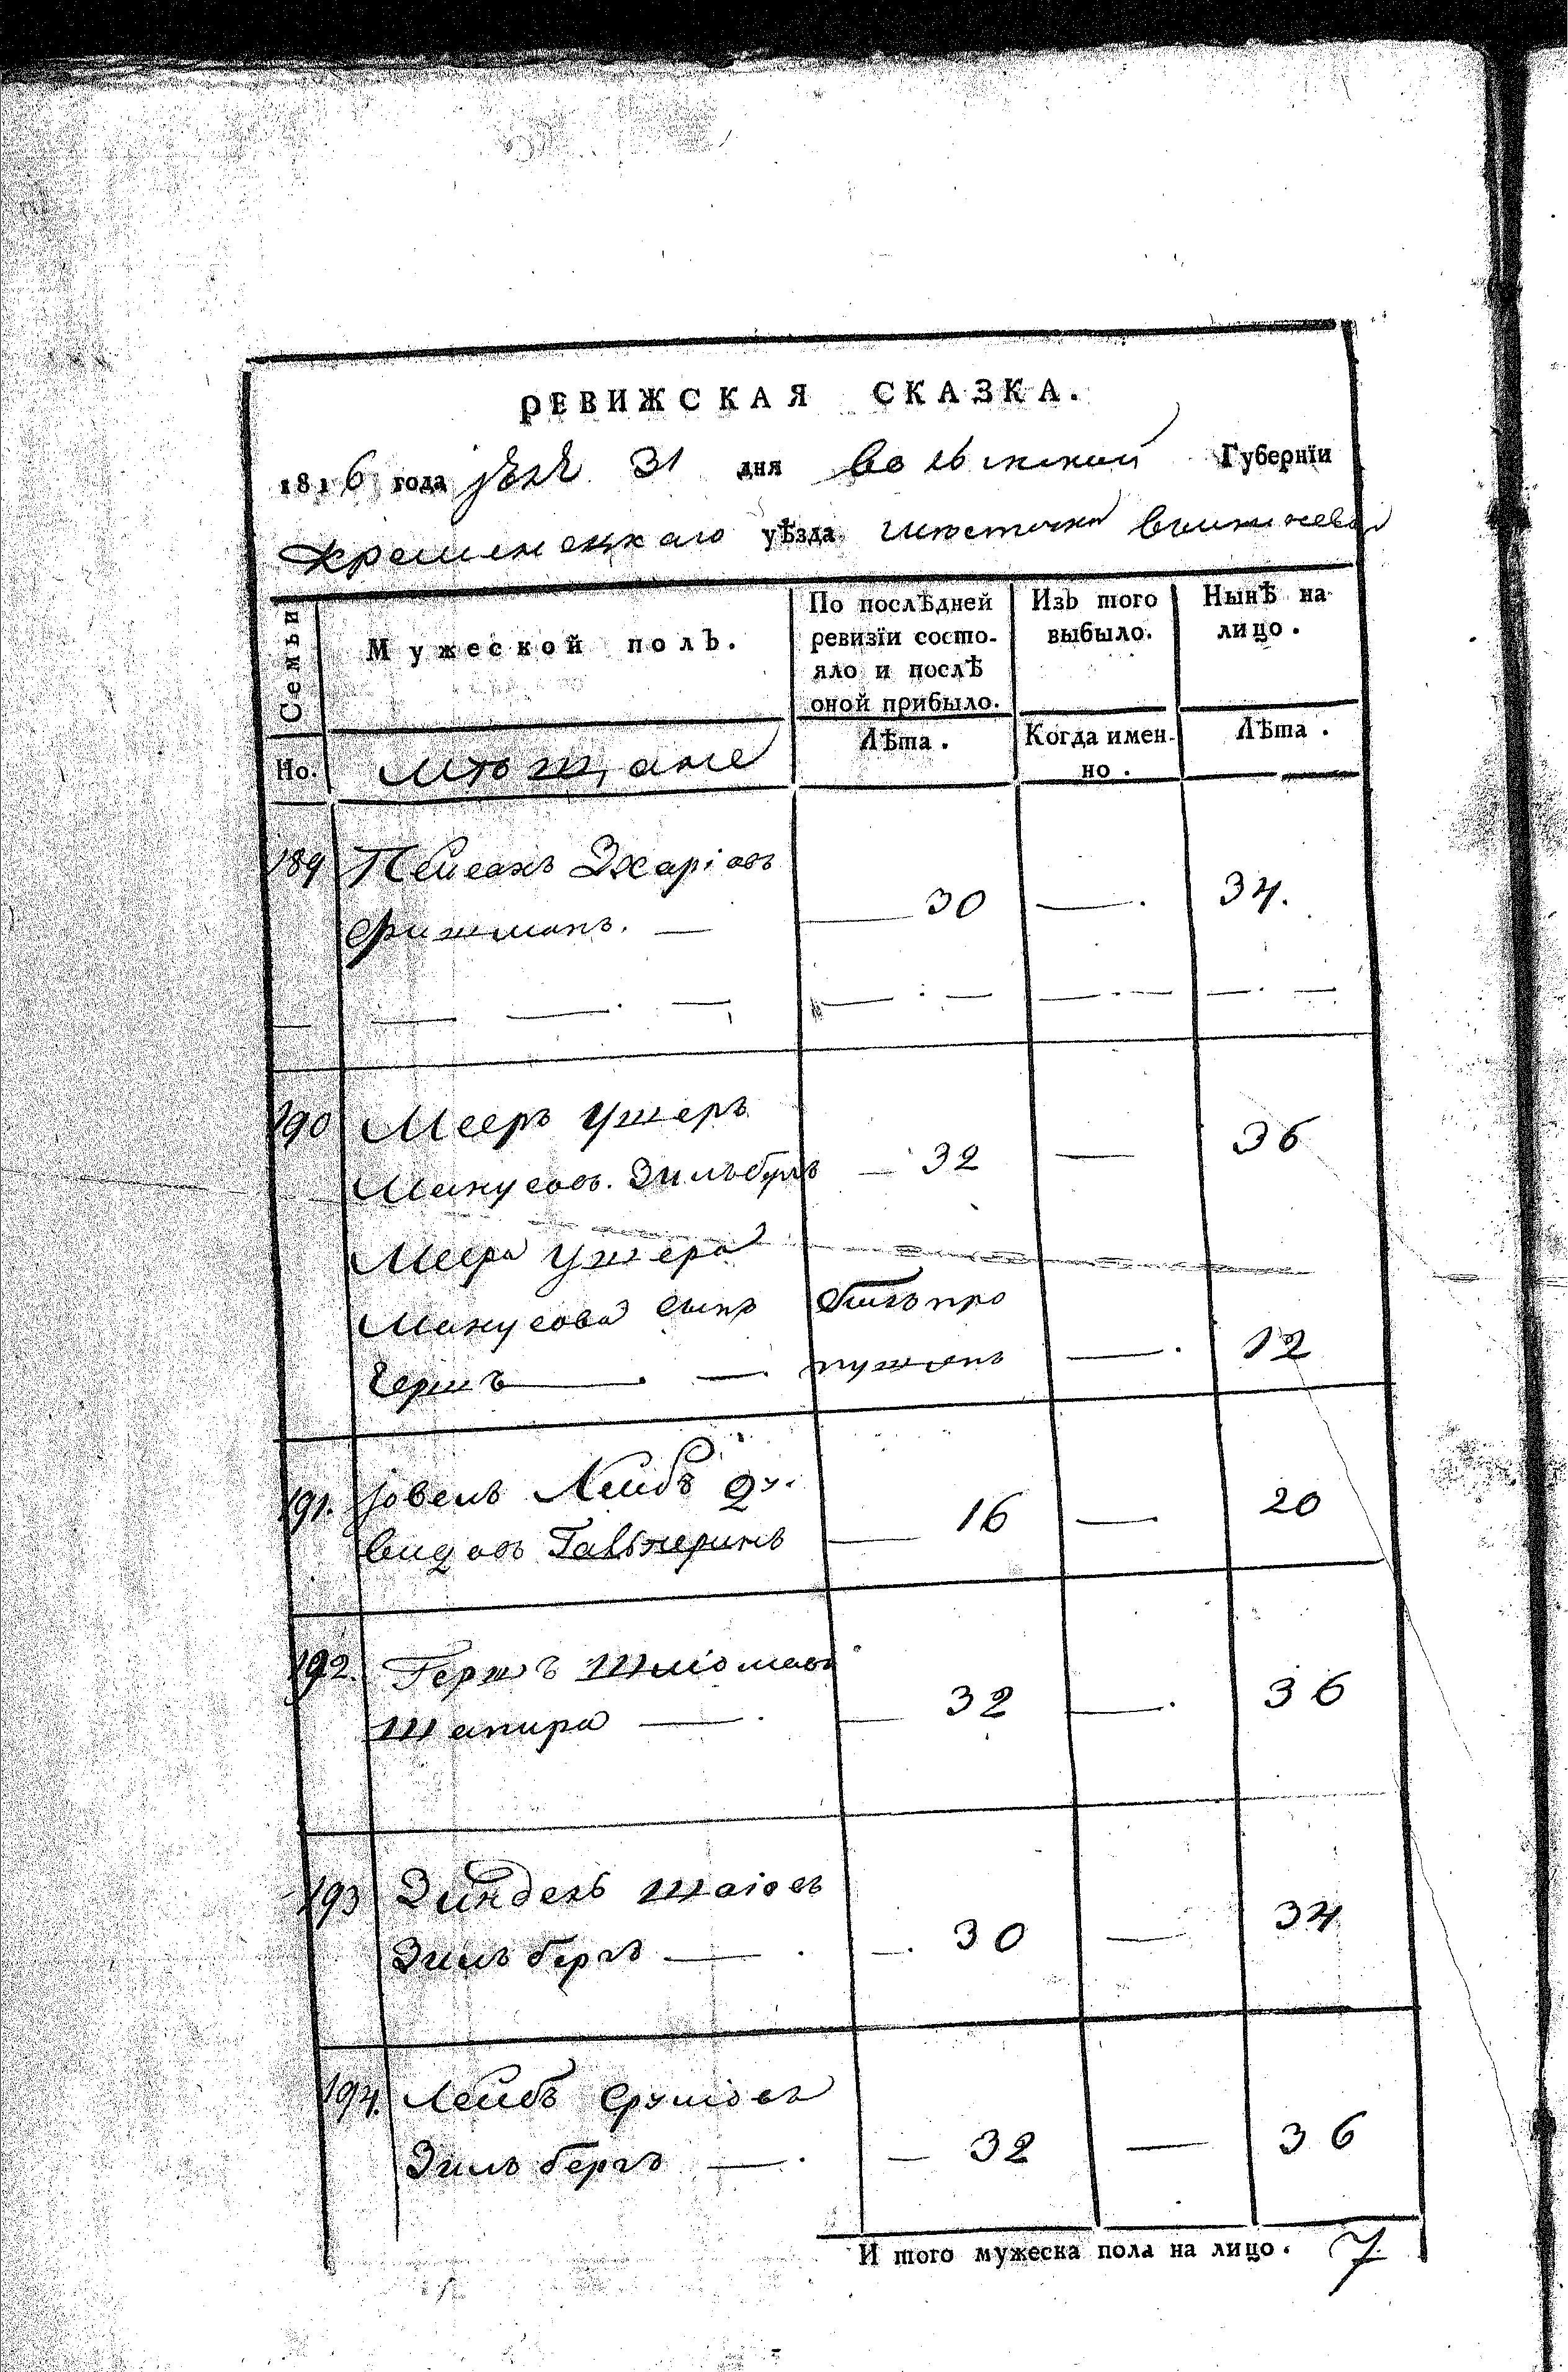 РЕВИЖСКАЯ СКАЗКА.
1816 года 31 дня волынской Губернїи
кременецкаго уѣзда местечка вишневца
Семьи
Мужеской полъ.
По послѣдней ревизїи состо-
яло и послѣ
оной прибыло.
Изъ того
выбыло.
Нынѣ на-
лицо.
Но.
мѣщане
Лѣта.
Когда имен-
но.
Лѣта.
189 Пейсахъ Зхарiовъ
Фишманъ. — 30 — 34.
190 Мееръ Ушеръ
Манусовъ. Зильбергъ — 32 — 36
Меера Ушера
Манусова сынъ былъ про
Гершъ — пущенъ — 12
191. Іовель Лейбъ Да-
видовъ 16 — 20
192. Гершъ Шлiомовъ
Шапира — 32 — 36
193 Зиндель Шаiовъ
Зильбергъ — 30 — 34
194. Лейбъ Срулiовъ
Зильбергъ — 32 — 36
И того мужеска пола на лицо. 7.